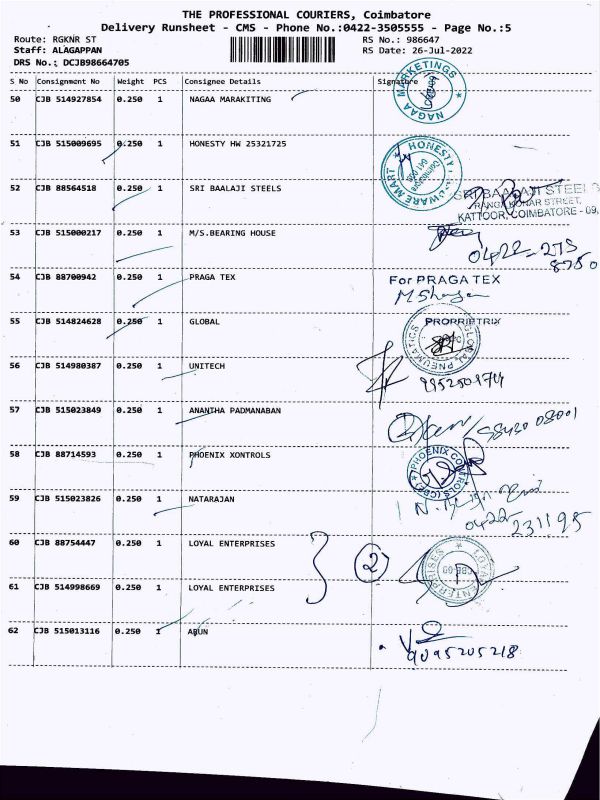 THE PROFESSIONAL COURIERS, Coimbatore
Delivery Runsheet - CMS - Phone No.:0422-3505555 - Page No.:5
Route: RGKNR ST RS No.: 986647
Staff: ALAGAPPAN RS Date: 26-Jul-2022
DRS No.: DCJB98664705
S No Consignment No Weight PCS Consignee Details Signature
NAGAA MARKETINGS
50 CJB 514927854 0.250 1 NAGAA MARAKITING
51 CJB 515009695 0.250 1 HONESTY HW 25321725
HONESTY HARDWARE MART
52 CJB 88564518 0.250 1 SRI BAALAJI STEELS
SRI BAALAJI STEELS
STREET,
KATTOOR, COIMBATORE - 09.
53 CJB 515000217 0.250 1 M/S.BEARING HOUSE
0422-275
8750
54 CJB 88700942 0.250 1 PRAGA TEX
For PRAGA TEX
55 CJB 514824628 0.250 1 GLOBAL
PROPRIETRIX
GLOBAL PNEUMATICS
56 CJB 514980387 0.250 1 UNITECH
57 CJB 515023849 0.250 1 ANANTHA PADMANABAN
98430 08001
58 CJB 88714593 0.250 1 PHOENIX XONTROLS
PHOENIX CONTROLS (CBE)
59 CJB 515023826 0.250 1 NATARAJAN
0422
231195
60 CJB 88754447 0.250 1 LOYAL ENTERPRISES
2
LOYAL ENTERPRISES
61 CJB 514998669 0.250 1 LOYAL ENTERPRISES
62 CJB 515013116 0.250 1 ARUN
9095205218